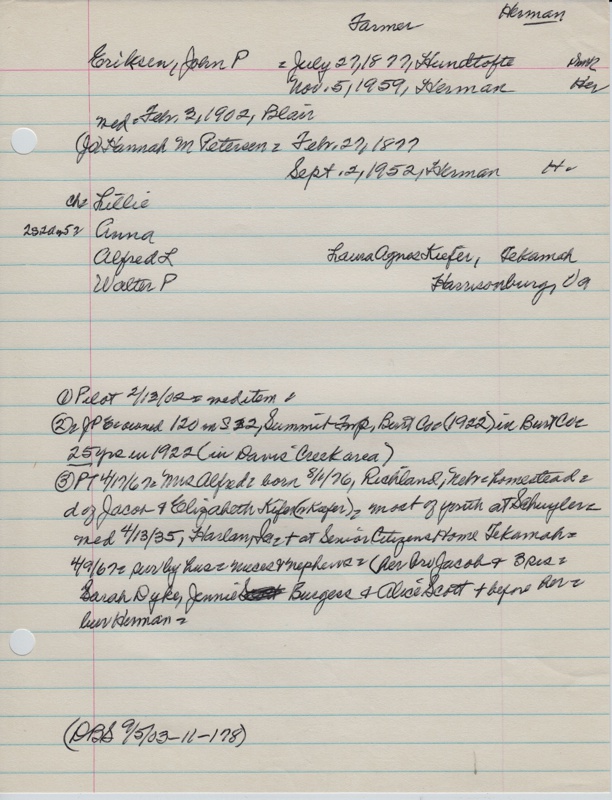 Farmer Herman
Eriksen, John P = July 27, 1877, Hundtofte Dmk
Nov. 5, 1959, Herman Her
med = Febr. 3, 1902, Blair
(Jo) Hannah M Petersen = Febr. 27, 1877
Sept. 2, 1952, Herman H =
ch = Lillie
Anna
Alfred L Laura Agnes Kiefer, Tekamah
Walter P Harrisonburg, Va
① Pilot 2/13/02 = med item =
② = JPE owned 120 in S 32, Summit Twp, Burt Co (1922) in Burt Co
25 yrs in 1922 (in Davis Creek area)
③ PT 4/17/67 = Mrs Alfred = born 8/6/76, Richland, Nebr = homestead =
d of Jacob & Elizabeth Kifer (or Kiefer) = most of youth at Schuyler =
med 4/13/35, Harlan, Ia = + at Senior Citizens Home Tekamah =
4/9/67 = sur by hus = nieces & nephews = (her bro Jacob & 3 sis =
Sarah Dyke, Jennie Burgess & Alice Scott + before her =
bur Herman =
(DBS 9/5/03-11-178)